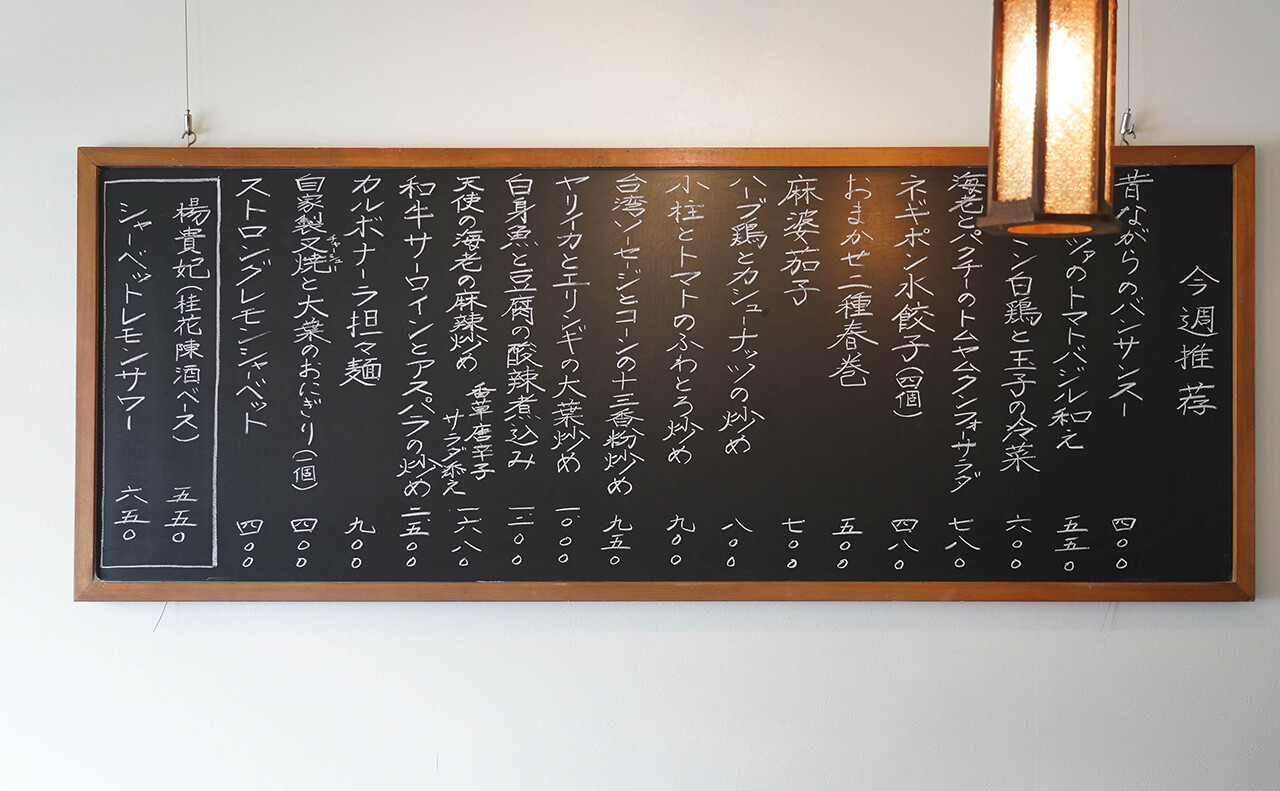 今週推荐
昔ながらのバンサンスー 四〇〇
ツァのトマトバジル和え 五五〇
ン白鶏と玉子の冷菜 六〇〇
海老とパクチーのトムヤムクンフォーサラダ 七八〇
ネギポン水餃子(四個) 四八〇
おまかせ二種春巻 五〇〇
麻婆茄子 七〇〇
ハーブ鶏とカシューナッツの炒め 八〇〇
小柱とトマトのふわとろ炒め 九〇〇
台湾ソーセージとコーンの十三香粉炒め 九五〇
ヤリイカとエリンギの大葉炒め 一〇〇〇
白身魚と豆腐の酸辣煮込み 一二〇〇
天使の海老の麻辣炒め 香草唐辛子サラダ添え 一六八〇
和牛サーロインとアスパラの炒め 二五〇〇
カルボナーラ担々麺 九〇〇
自家製叉焼と大葉のおにぎり(一個) 四〇〇
チャーシュー
ストロングレモンシャーベット 四〇〇
楊貴妃(桂花陳酒ベース) 五五〇
シャーベットレモンサワー 六五〇